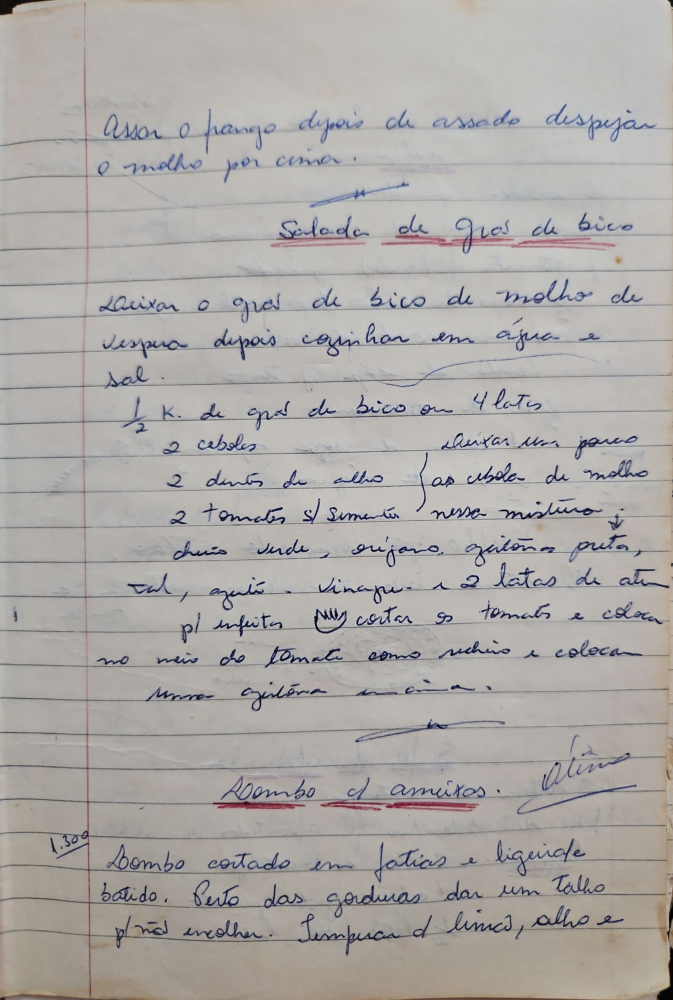 Assar o frango depois de assado despejar
o molho por cima.
Salada de grão de bico
Deixar o grão de bico de molho de
vespera depois cozinhar em água e
sal.
1/2 K. de grão de bico ou 4 latas
2 cebolas
2 dentes de alho
2 tomates s/ semente
Deixar um pouco
as cebola de molho
nessa mistura.
cheiro verde, orégano, azeitonas pretas,
sal, azeite. Vinagre. e 2 latas de atum
p/ enfeitar cortar os tomates e colocar
no meio do tomate como recheio e colocar
uma azeitona em cima.
Lombo c/ ameixas. Ótimo
1.300
Lombo cortado em fatias e ligeirate
batido. Perto das gorduras dar um talho
p/ não encolher. Temperar c/ limão, alho e